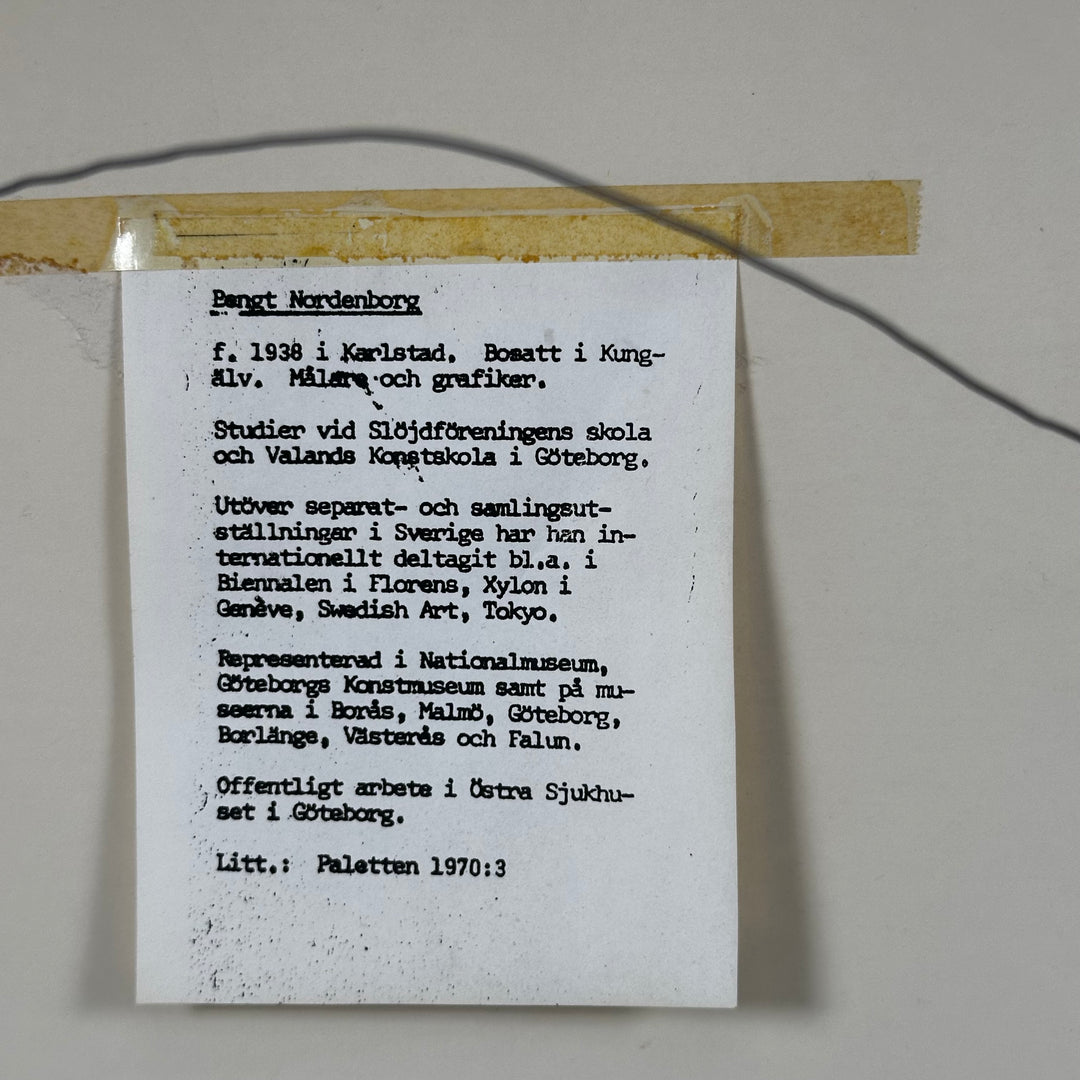 Bengt Nordenborg
f. 1938 i Karlstad. Bosatt i Kung-
älv. Målare och grafiker.
Studier vid Slöjdföreningens skola
och Valands Konstskola i Göteborg.
Utöver separat- och samlingsut-
ställningar i Sverige har han in-
ternationellt deltagit bl.a. i
Biennalen i Florens, Xylon i
Genève, Swedish Art, Tokyo.
Representerad i Nationalmuseum,
Göteborgs Konstmuseum samt på mu-
seerna i Borås, Malmö, Göteborg,
Borlänge, Västerås och Falun.
Offentligt arbete i Östra Sjukhu-
set i Göteborg.
Litt.: Paletten 1970:3